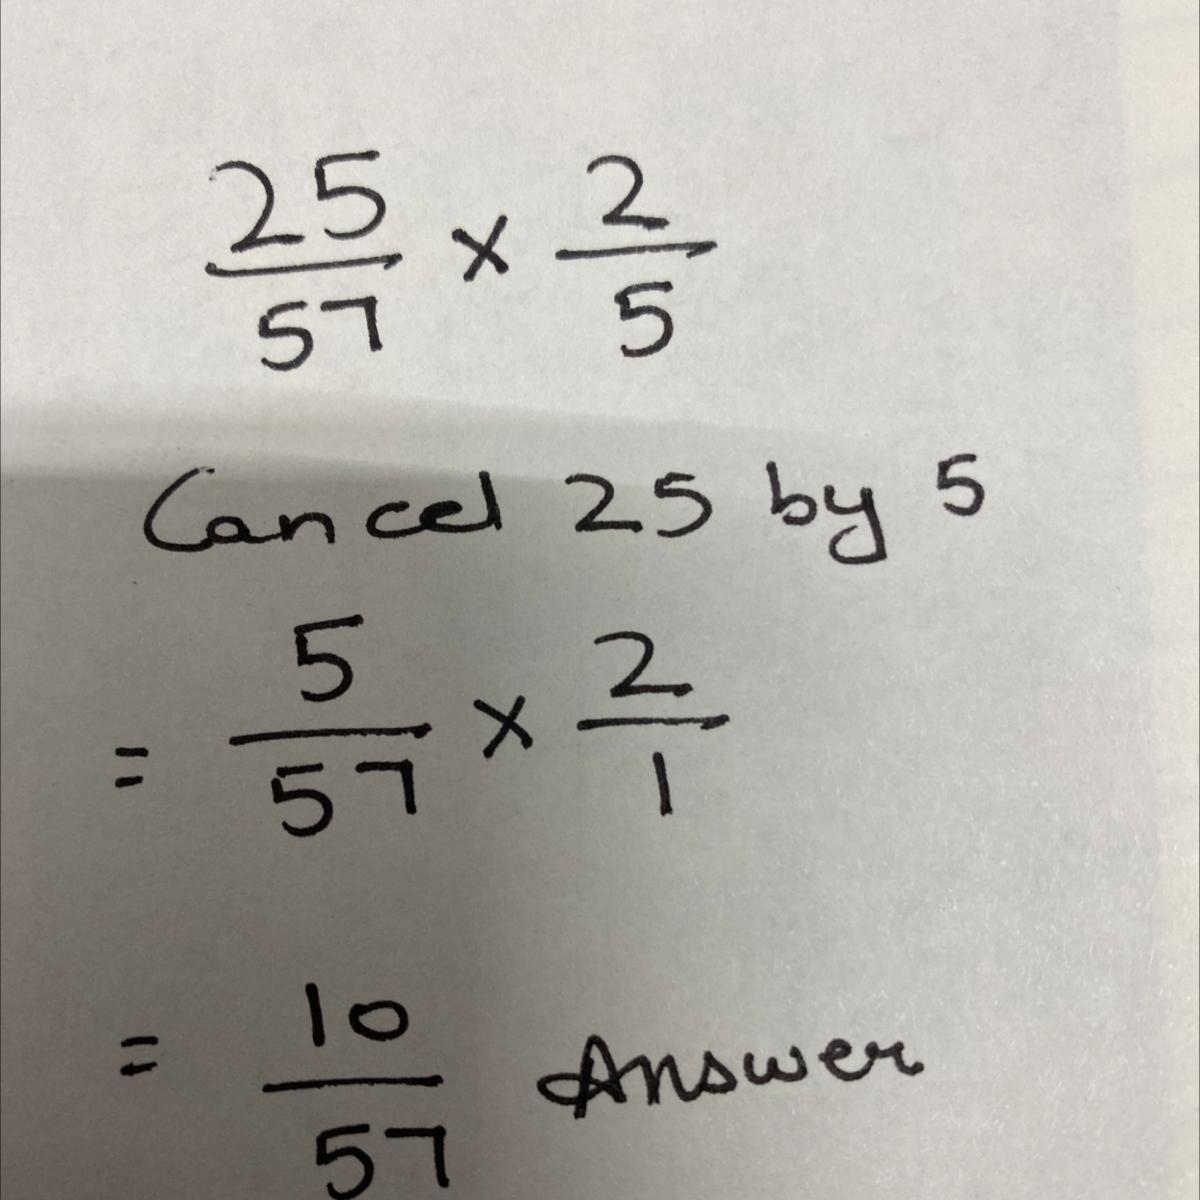 25/57 × 2/5
Cancel 25 by 5
= 5/57 × 2/1
= 10/57 Answer